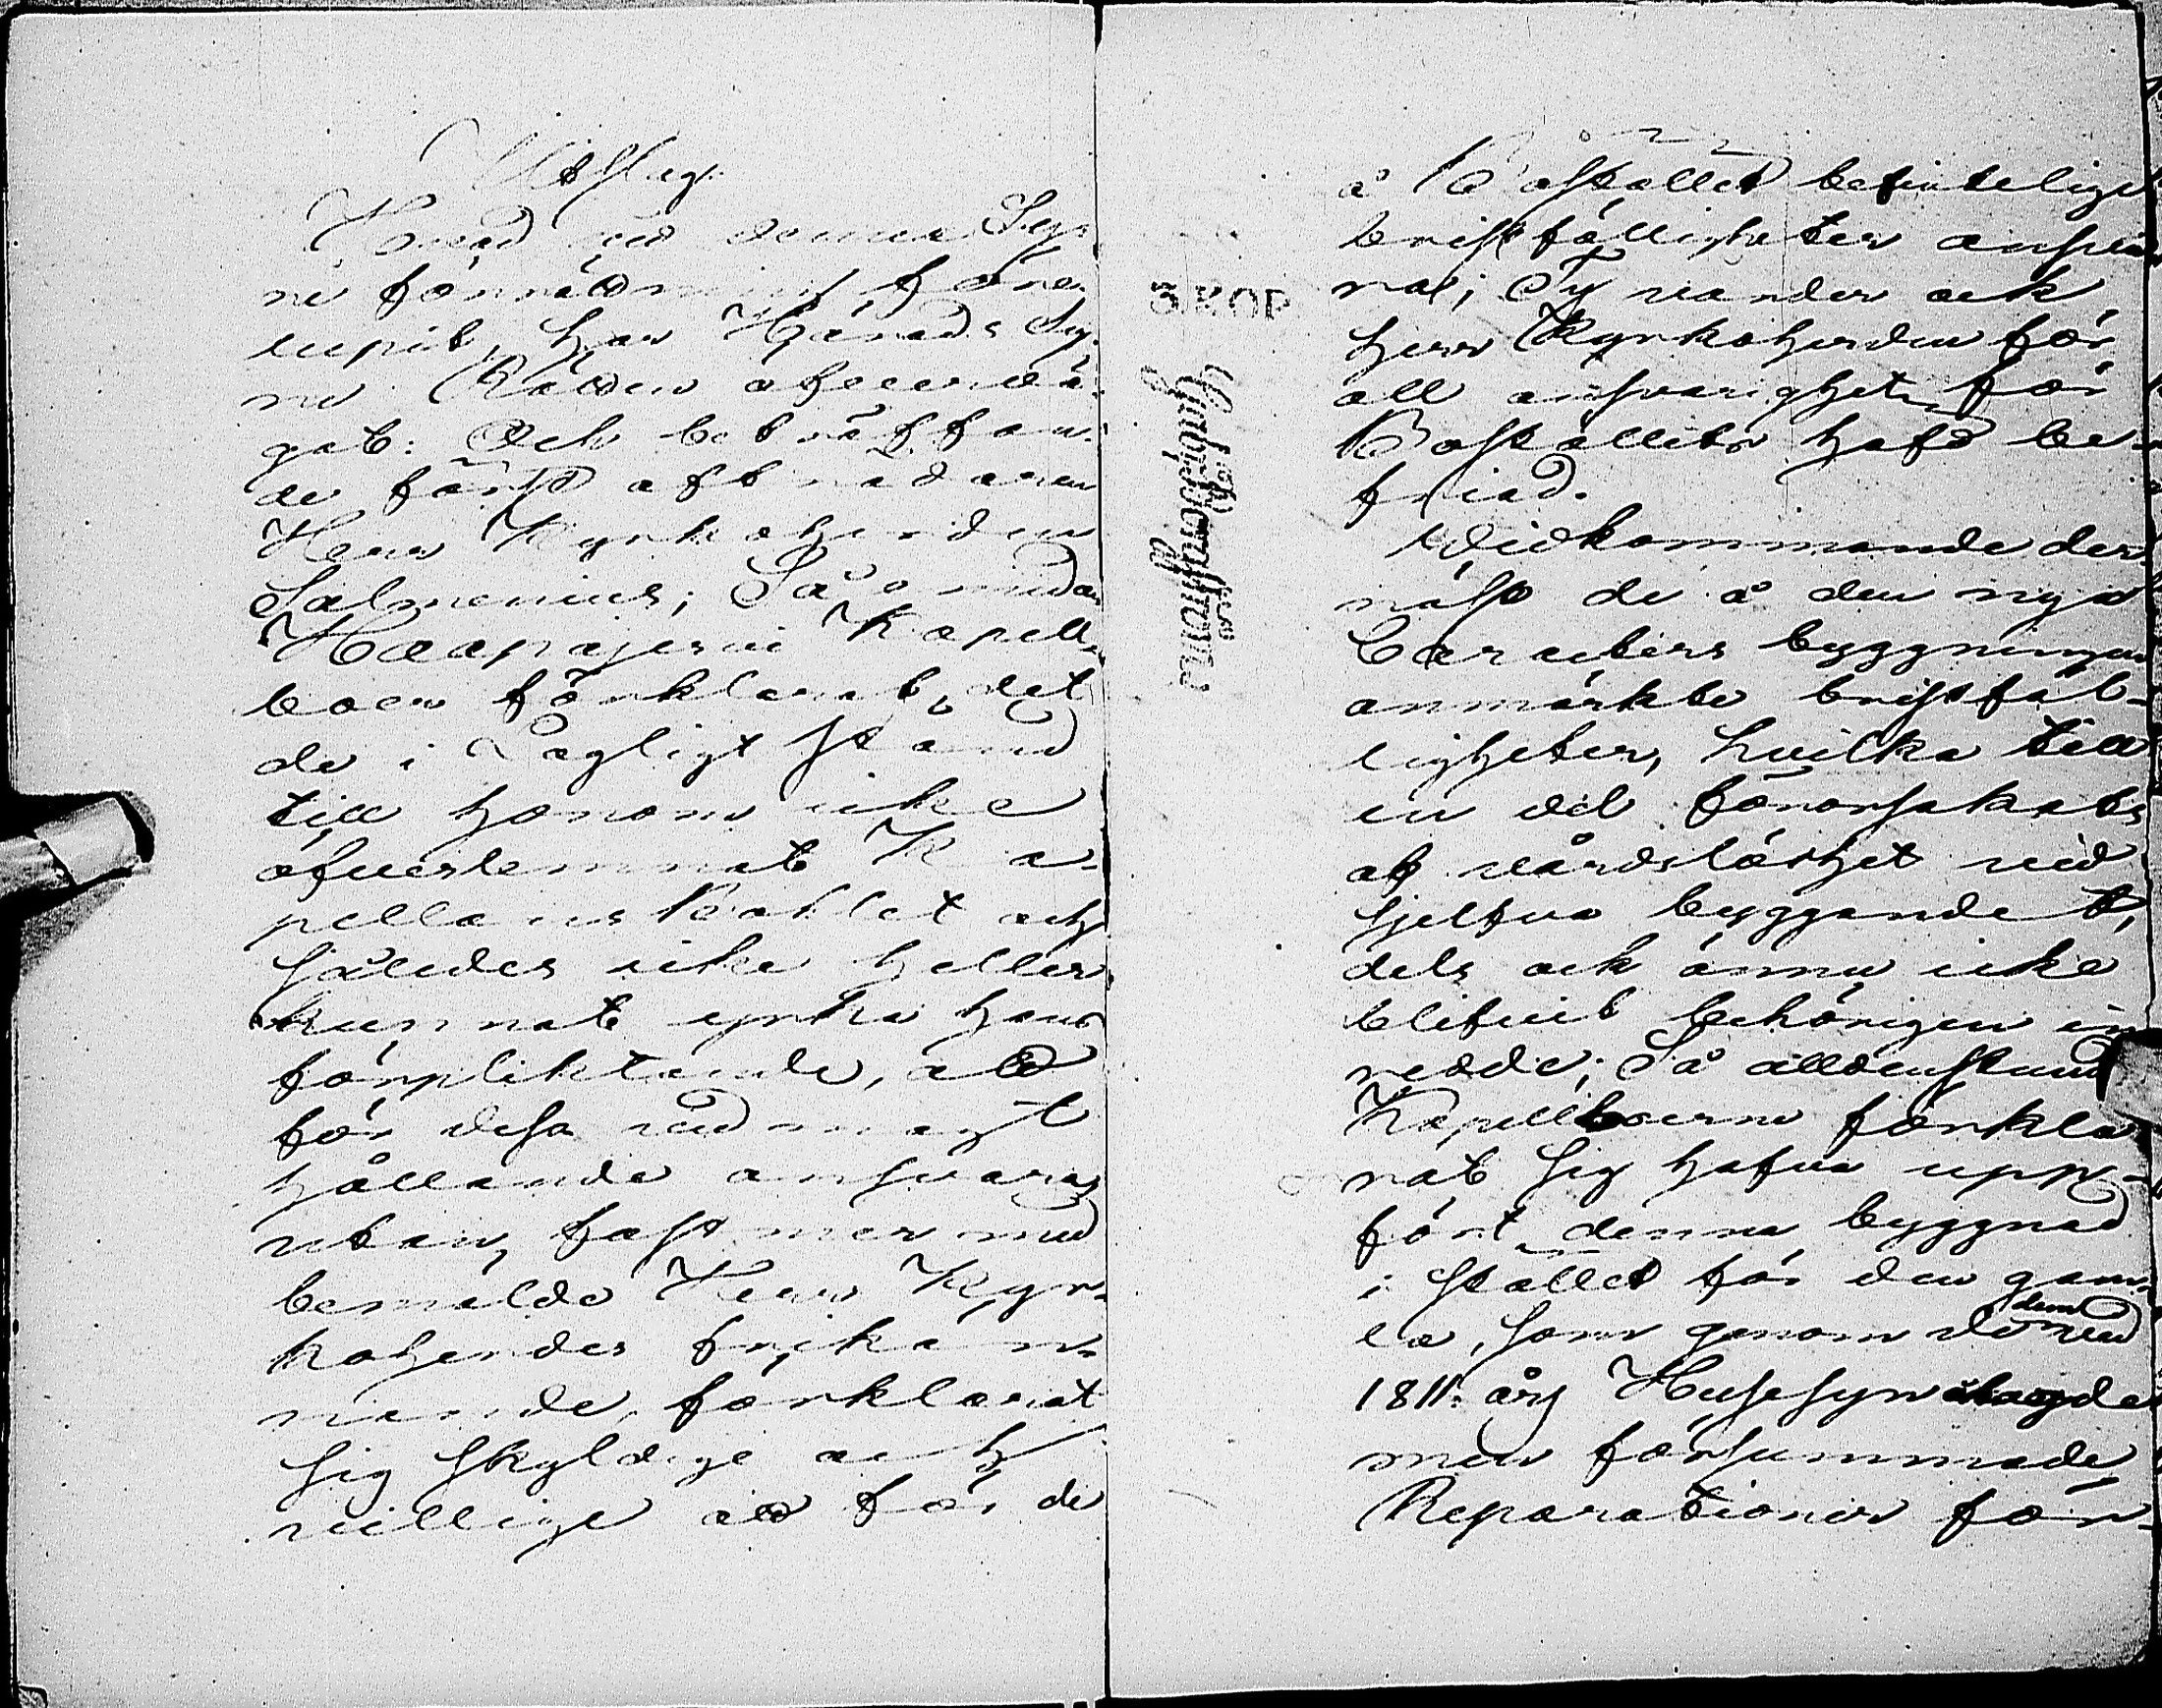 Utslag.
Hvad vid denna Sy-
ne förrättning före-
lupit, har Härads Sy-
ne Rätten öfvervä-
gat: Och beträffan-
de först afträdaren
Herr Kyrkoherden
Salmenius; Så emedan
Haapajervi Kapell-
boer förklarat, det
de i Lagligt stånd
till honom icke
öfverlemnat Ka-
pellans Bohlet och
således icke heller
kunnat yrka hans
förpliktande, att
för dess vid magt
hållande ansvara,
utan fast mer med
bemälde Herr Kyr-
koherdes frikän-
nande, förklarat
sig skyldige och
villige att för de
å Boställed befintelige
bristfälligheter ansva-
ra; Ty varder ock
herr Kyrkoherden för
all ansvarighet för
Boställets häfd be-
friad.
Vidkommande der-
näst de å den nya
Caracters byggningen
anmärkte bristfäl-
ligheter, hvilka till
en del förorsakats
af vårdslöshet vid
sjelfva byggandet,
dels ock ännu icke
blifvit behörigen in
redde; Så alldenstund
Kapellboerne förkla-
rat sig hafva upp-
fört denna byggnad
i stället för den gam-
la, som genom de
dem
vid
1811 års Husesyn ålagde
men försummade
Reparationer för-
5 KOP